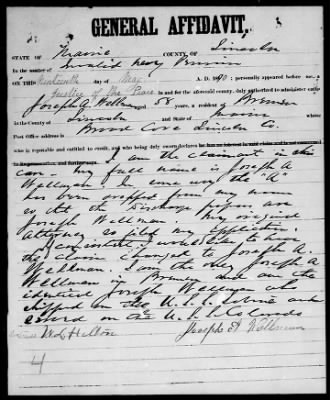 GENERAL AFFIDAVIT.
STATE OF Maine COUNTY OF Lincoln
In the matter of Invalid Navy Pension
ON THIS Nineteenth day of May A. D. 1890; personally appeared before me a
Justice of the Peace in and for the aforesaid county, duly authorized to administer oaths
Joseph A. Wellman aged 58 years, a resident of Bremen
in the County of Lincoln and State of Maine
Post Office address is Broad Cove Lincoln Co.
well known to be reputable and entitled to credit, and who being duly sworn declares
I am the claimant in this
case - my full name is Joseph A
Wellman. In some way the "A"
has been dropped from my name
so that the discharge papers are
Joseph Wellman. My original
attorney so filed my application.
If consistent, I would like to have
the claim changed to Joseph A.
Wellman. I am the only Joseph A
Wellman in Bremen and am the
identical Joseph Wellman who
shipped on the U.S.S. Sabine and
served on the U.S.S. Colorado
W. Hilton
Joseph A Wellman